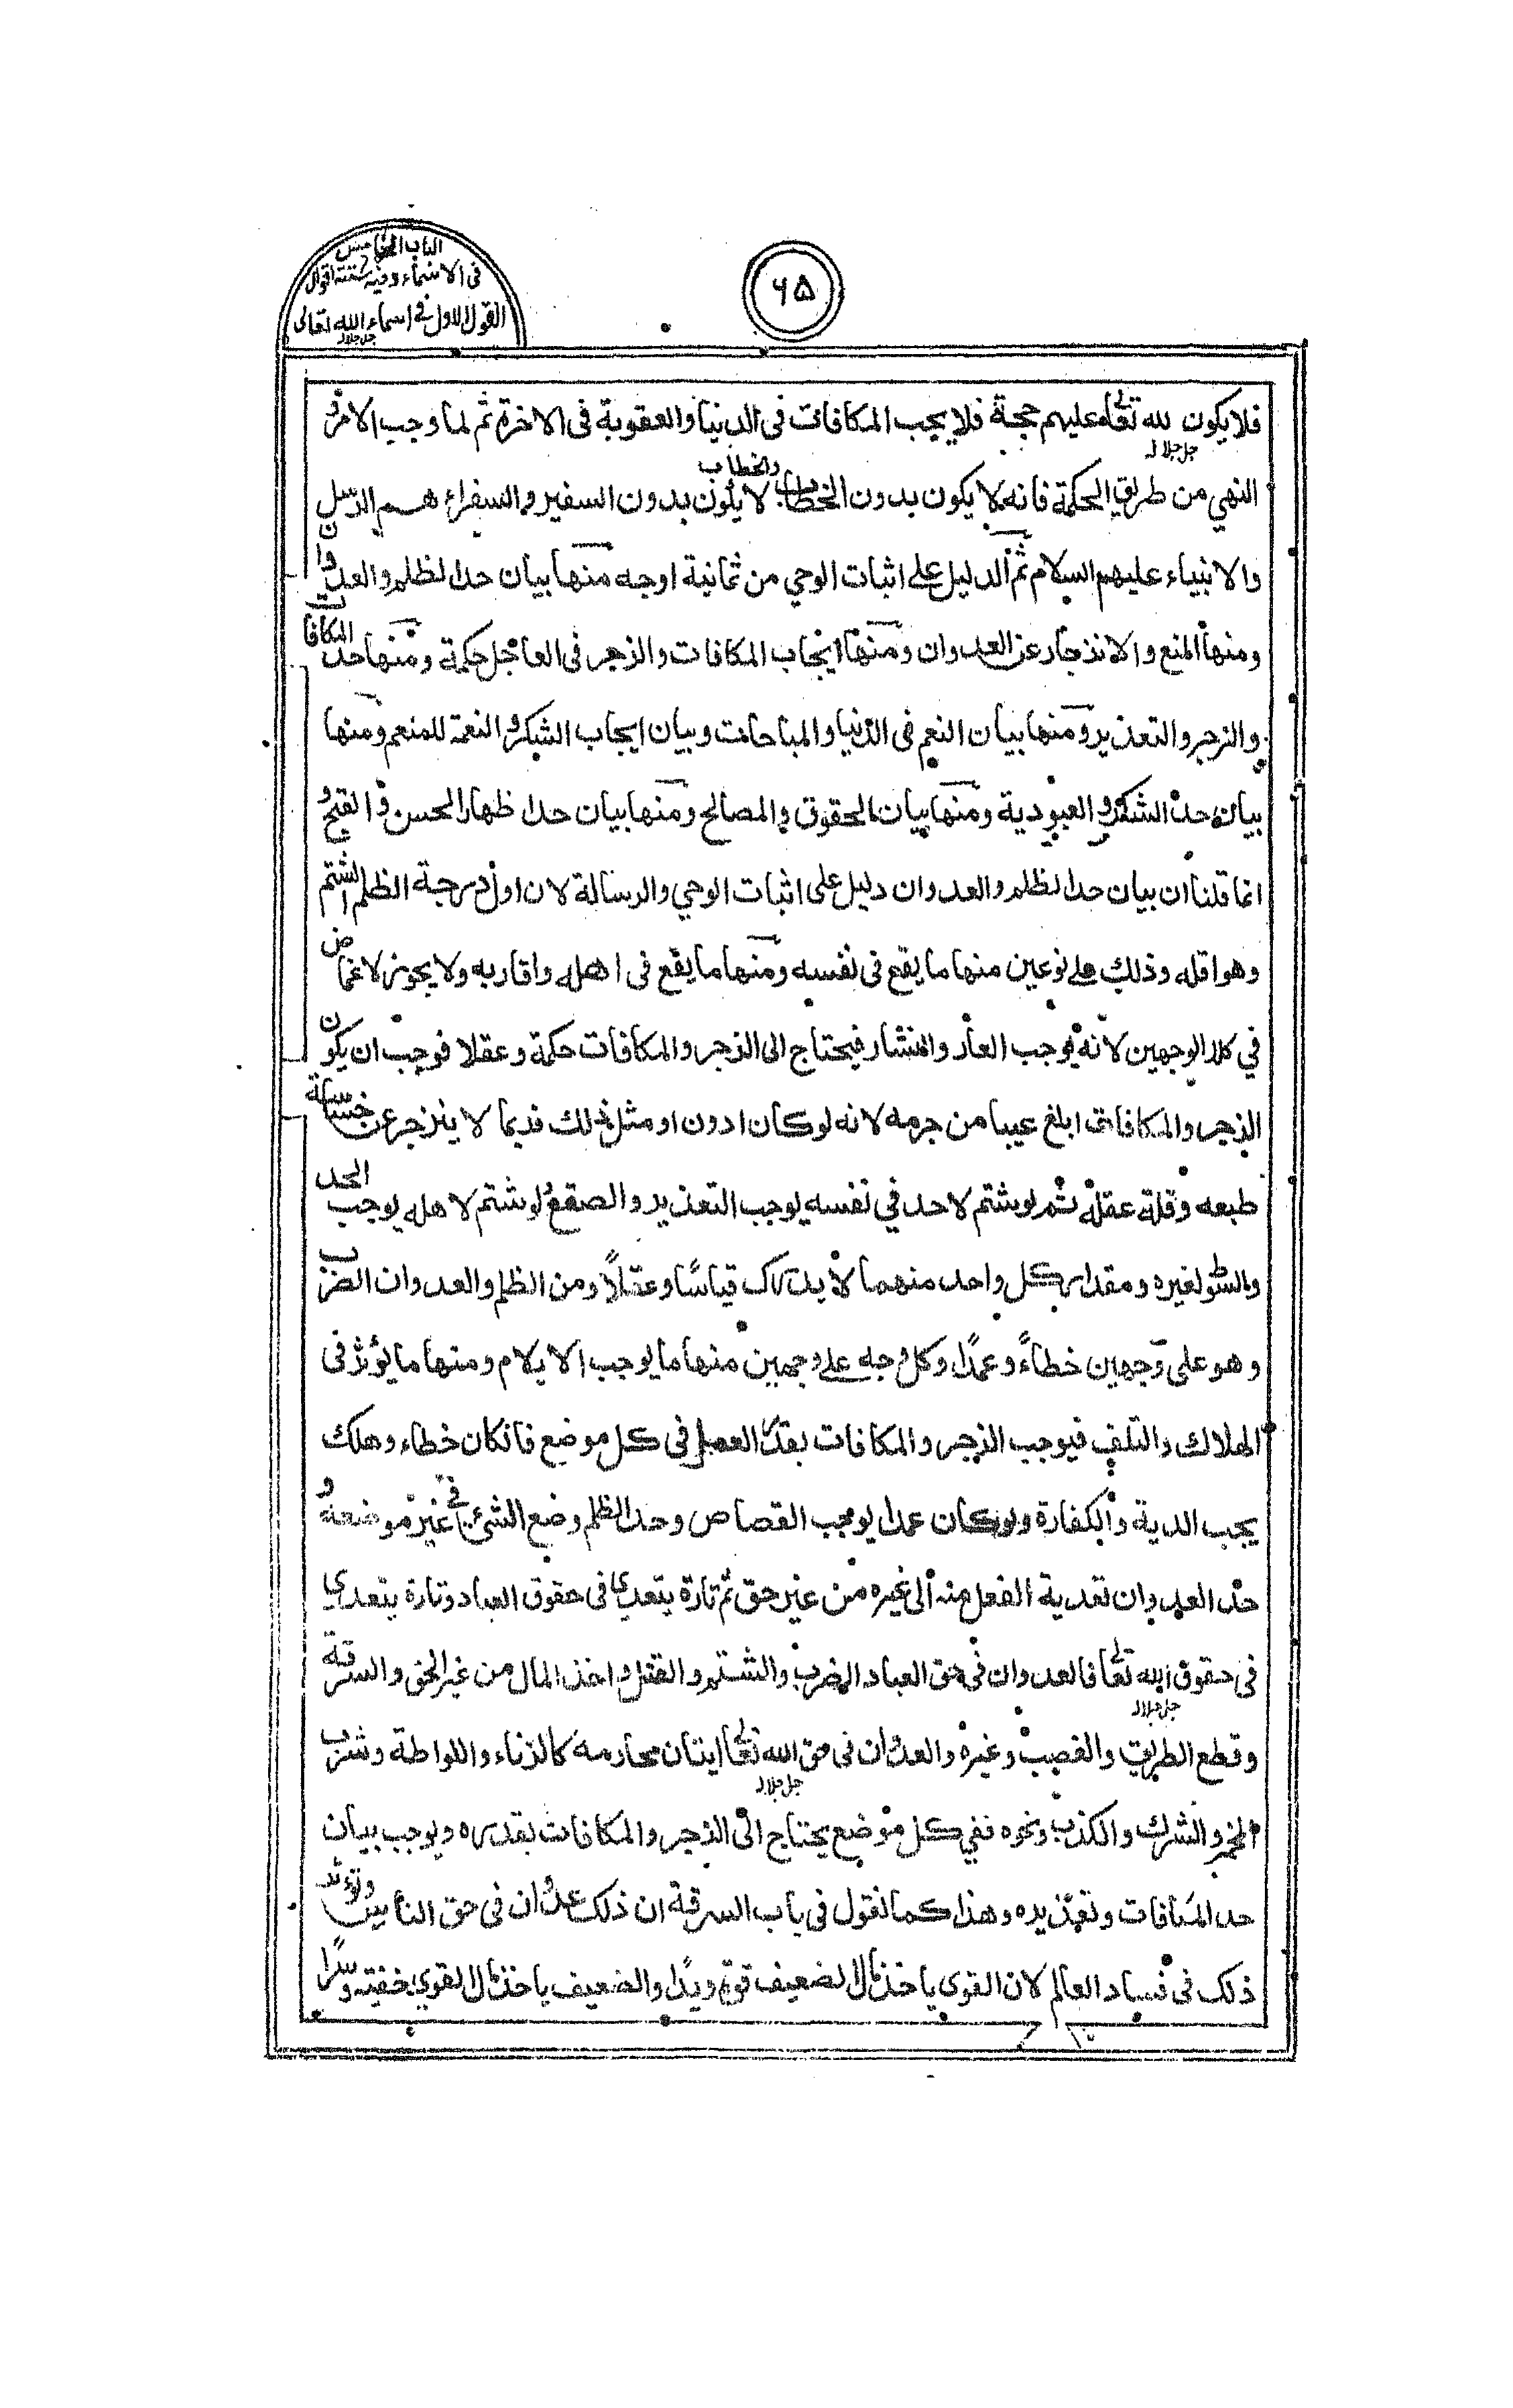 الباب الخامس
في الاسماء وفيه ستة اقوال
القول الاول في اسماء الله تعالى
جل جلاله
٦٥
فلا يكون لله تعالى جل جلاله عليهم حجة فلا يجب المكافات فى الدنيا والعقوبة فى الاخرة ثم لما وجب الامر و
النهي من طريق الحكمة فانه لا يكون بدون الخطاب والخطاب لا يكون بدون السفير والسفراء هم الرسل
والانبياء عليهم السلام ثم الدليل على اثبات الوحي من ثمانية اوجه منها بيان حد الظلم والعدوان
ومنها المنع والانزجار عن العدوان ومنها ايجاب المكافات والزجر فى العاجل حكمة ومنها حد المكافات
والزجر والتعذير ومنها بيان النعم فى الدنيا والمباحات وبيان ايجاب الشكر و النعمة للمنعم ومنها
بيان حد الشكر و العبودية ومنها بيان الحقوق والمصالح ومنها بيان حد اظهار الحسن و القبح و
انما قلنا ان بيان حد الظلم والعدوان دليل على اثبات الوحي والرسالة لان اول درجة الظلم الشتم
وهو اقله وذلك على نوعين منها ما يقع فى نفسه ومنها ما يقع فى اهله واقاربه ولا يجوز الاغماض
في كلا الوجهين لانه يوجب العار والشنار فيحتاج الى الزجر والمكافات حكمة وعقلا فوجب ان يكون
الزجر والمكافات ابلغ عيبا من جرمه لانه لو كان ادون او مثل ذلك فديما لا ينزجر عن خساسة
طبعه وقلة عقله ثم لو شتم لاحد في نفسه يوجب التعذير والصقع لو شتم لاهله يوجب الحد
لغيره ومقدار كل واحد منهما لا يدرك قياسًا وعقلًا ومن الظلم والعدوان الضرب
وهو على وجهين خطاءً وعمدًا وكل وجه على وجهين منها ما يوجب الايلام ومنها ما يؤثر فى
الهلاك والتلف فيوجب الزجر والمكافات بقدر العمل فى كل موضع فان كان خطاء وهلك
يجب الدية والكفارة ولو كان عمدا يوجب القصاص وحد الظلم وضع الشئ في غير موضعه و
حد العدوان تعدية الفعل منه الى غيره من غير حق ثم تارة يتعدى فى حقوق العباد وتارة يتعدى
فى حقوق الله تعالى جل جلاله فالعدوان في حق العباد الضرب والشتم والقتل واخذ المال من غير الحق والسرقة
وقطع الطريق والغصب وغيره والعدوان فى حق الله تعالى جل جلاله ايتان محارمه كالزناء واللواطة وشرب
الخمر والشرك والكذب ونحوه ففي كل موضع يحتاج الى الزجر والمكافات بقدره ويوجب بيان
حد المكافات وتعذيره وهذا كما نقول فى باب السرقة ان ذلك عدوان فى حق الناس
ذلك فى فساد العالم لان القوى ياخذ مال الضعيف قوة ويدًا والضعيف ياخذ مال القوي خفيته وسرًا